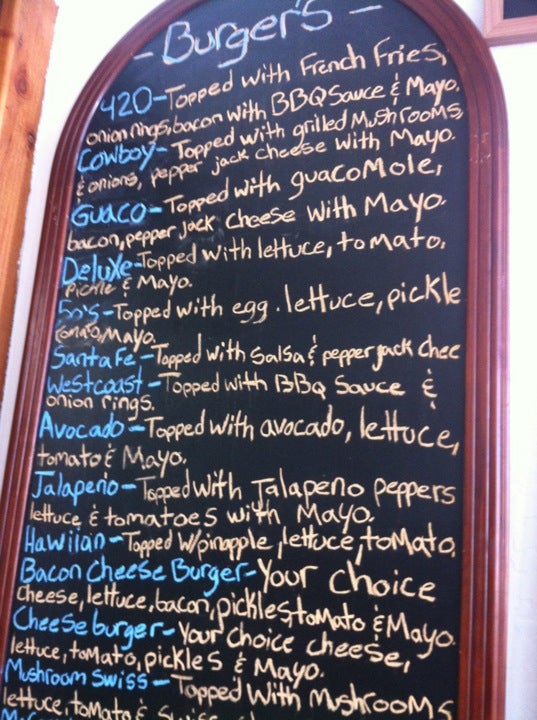 - Burger's -
420 - Topped with French Fries,
onion rings, bacon with BBQ Sauce & Mayo.
Cowboy - Topped with grilled Mushrooms,
& onions, pepper jack cheese with Mayo.
Guaco - Topped with guacomole,
bacon, pepper jack cheese with Mayo.
Deluxe - Topped with lettuce, tomato,
Pickle & Mayo.
50's - Topped with egg. lettuce, pickle
tomato, Mayo.
Santa Fe - Topped with Salsa & pepper jack chee
Westcoast - Topped with BBQ Sauce &
onion rings.
Avocado - Topped with avocado, lettuce,
tomato & Mayo.
Jalapeño - Topped with Jalapeno peppers
lettuce & tomatoes with Mayo.
Hawiian - Topped w/pinapple, lettuce, tomato.
Bacon Cheese Burger - Your choice
Cheese, lettuce, bacon, pickles, tomato & Mayo.
Cheeseburger - Your choice cheese,
lettuce, tomato, pickles & Mayo.
Mushroom Swiss - Topped with Mushrooms
lettuce, tomato & Swiss